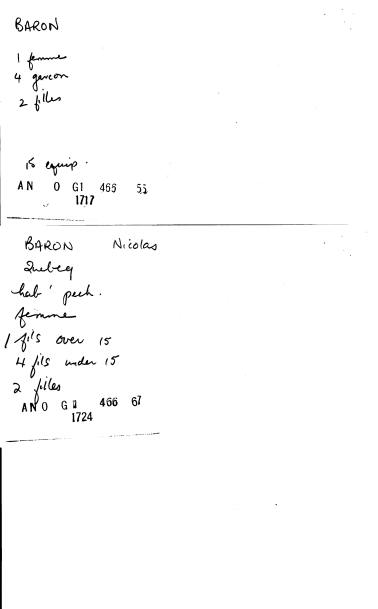 BARON
1 femme
4 garcon
2 filles
15 equip.
AN O G1 466 55
1717
BARON Nicolas
Quebeq
hab' pech.
femme
1 fils over 15
4 fils under 15
2 filles
AN O G 466 67
1724